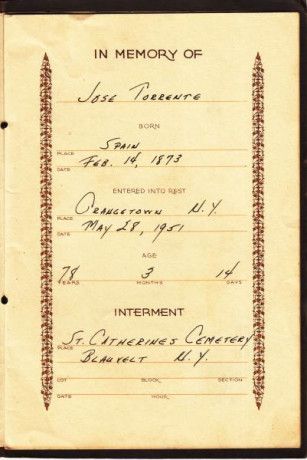 IN MEMORY OF
JOSE TORRENTE
BORN
SPAIN
PLACE
FEB. 14, 1873
DATE
ENTERED INTO REST
ORANGETOWN N.Y.
PLACE
MAY 28, 1951
DATE
AGE
78 3 14
YEARS MONTHS DAYS
INTERMENT
ST. CATHERINES CEMETERY
PLACE
BLAUVELT N.Y.
LOT BLOCK SECTION
DATE HOUR